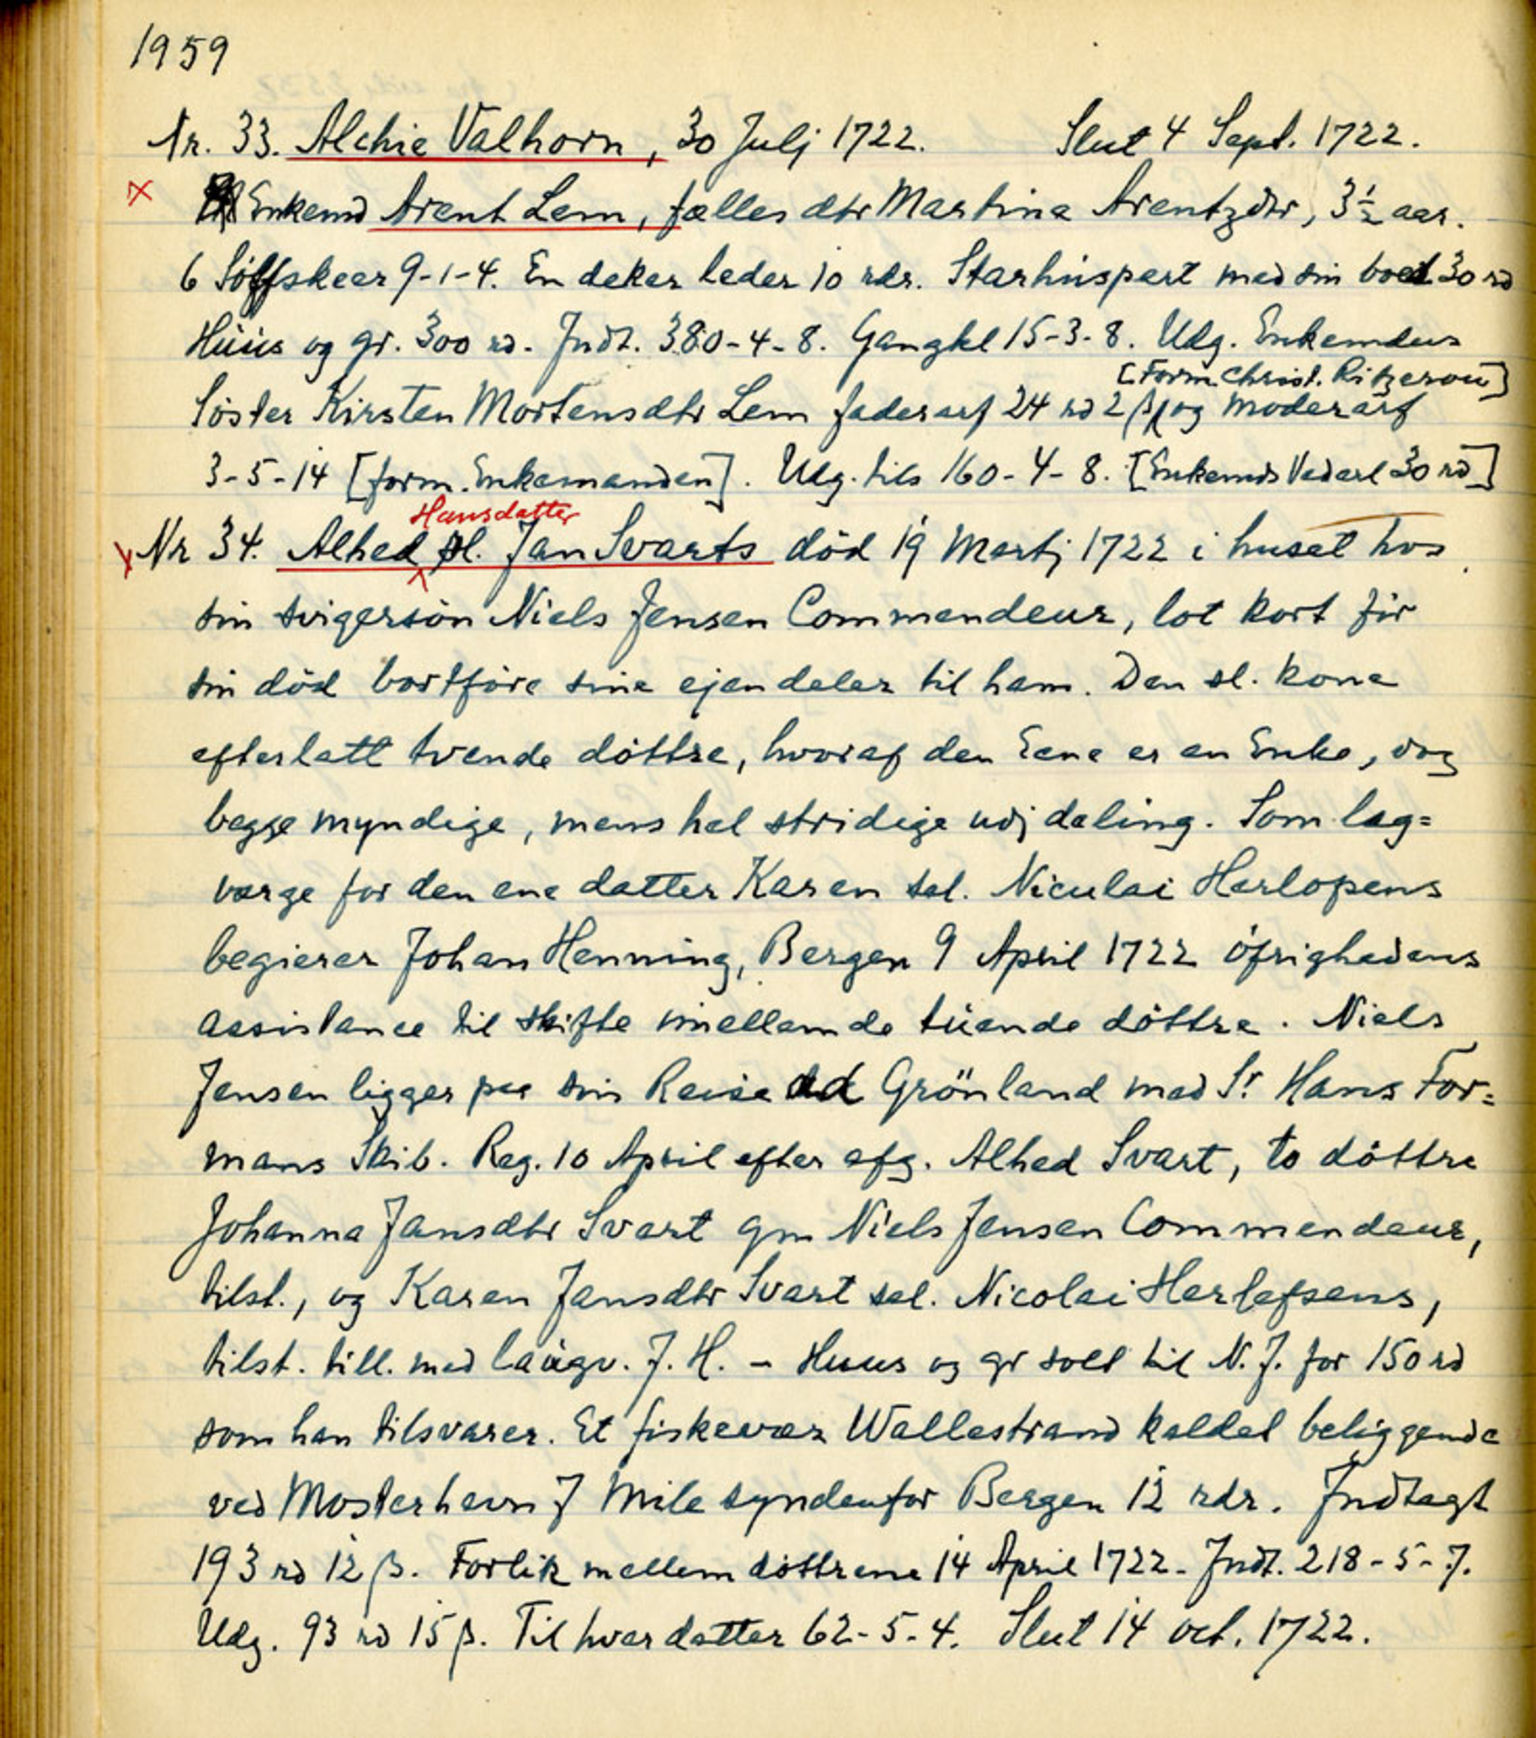 1959
Nr. 33. Alchie Valhorn, 30 Julj 1722. Slut 4 Sept. 1722.
Enkemd Arent Lem, fælles dtr Martina Arentzdtr, 3½ aar.
6 Söffskeer 9-1-4. En deker leder 10 rdr. Starhuspart med sin boed 30 rd
Hüus og gr. 300 rd. Jndt. 380-4-8. Gangkl 15-3-8. Udg. Enkemdens
[Form. Christ. Ritzerou]
Söster Kirsten Mortensdtr Lem faderarf 24 rd 2 β og moderarf
3-5-14 [form. Enkemanden]. Udg. tils 160-4-8. [Enkemds Vederl 30 rd]
Hansdatter
Nr 34. Alhed sl. Jan Svarts död 19 Martj 1722 i huset hos
sin svigersön Niels Jensen Commendeur, lot kort för
sin död bortföre sine ejendeler til ham. Den sl. kone
efterlatt tvende döttre, hvoraf den Eene er en Enke, dog
begge myndige, mens hel stridige udj deling. Som lag=
værge for den ene datter Karen sal. Niculai Herlopens
begierer Johan Henning, Bergen 9 April 1722 öfrighedens
assistance til skifte imellem de tüende döttre. Niels
Jensen ligger paa sin Reise ad Grönland med Sr Hans For=
mans Skib. Reg. 10 April efter afg. Alhed Svart, to döttre
Johanna Jansdtr Svart gm Niels Jensen Commendeur,
tilst., og Karen Jansdtr Svart sal. Nicolai Herlefsens,
tilst. till. med laugv. J. H. - Huus og gr sold til N. J. for 150 rd
som han tilsvarer. Et fiskevær Wallestrand kaldet beliggende
ved Mosterhavn 7 Mile syndenfor Bergen 12 rdr. Jndtagt
193 rd 12 β. Forlik mellem döttrene 14 April 1722. Jndt. 218-5-7.
Udg. 93 rd 15 β. Til hver datter 62-5-4. Slut 14 oct. 1722.